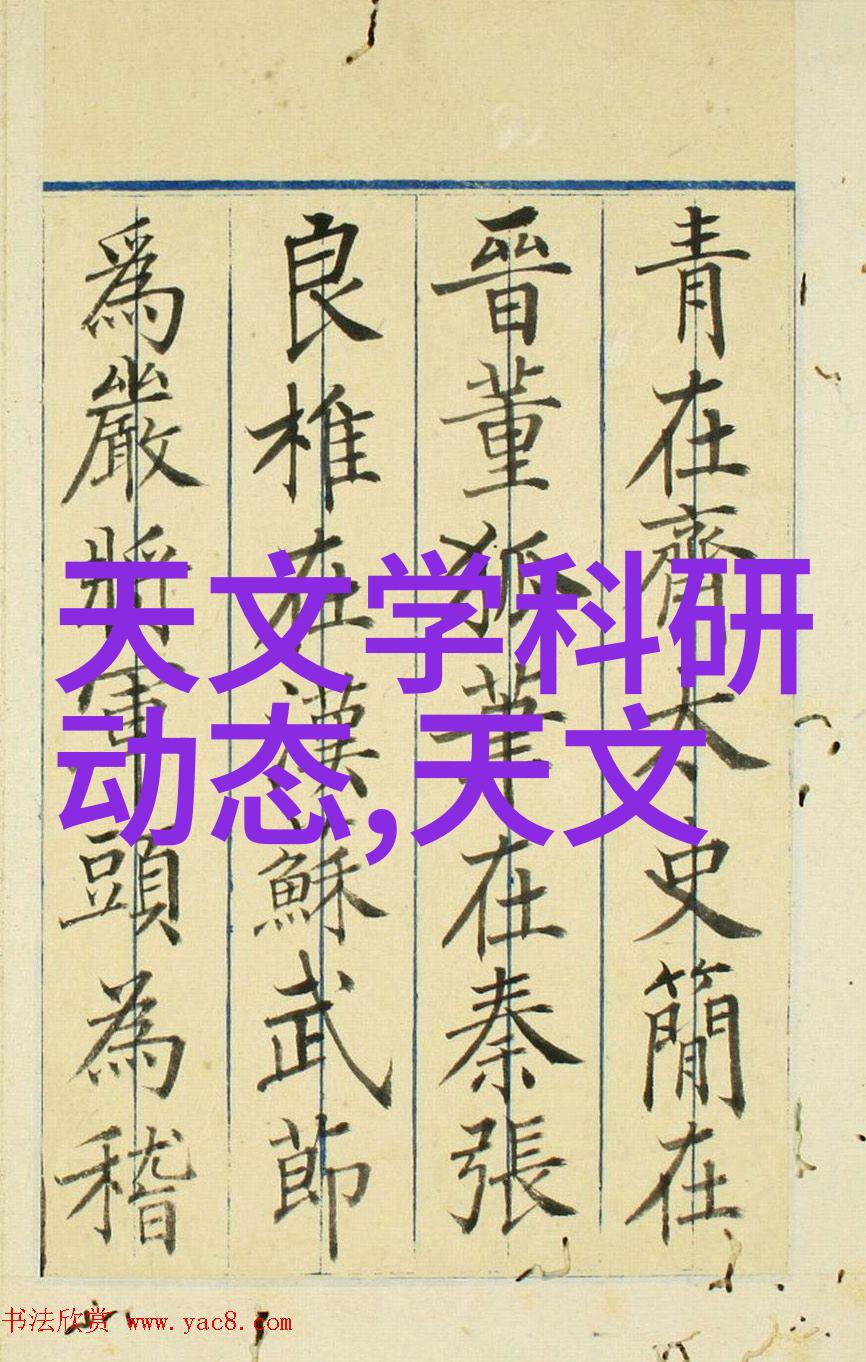 青在齊太史簡在
晉董狐筆在秦張
良椎在漢蘇武節
爲嚴將軍頭為嵇
天文学科研
动态,天文
书法欣赏 www.yac8.com